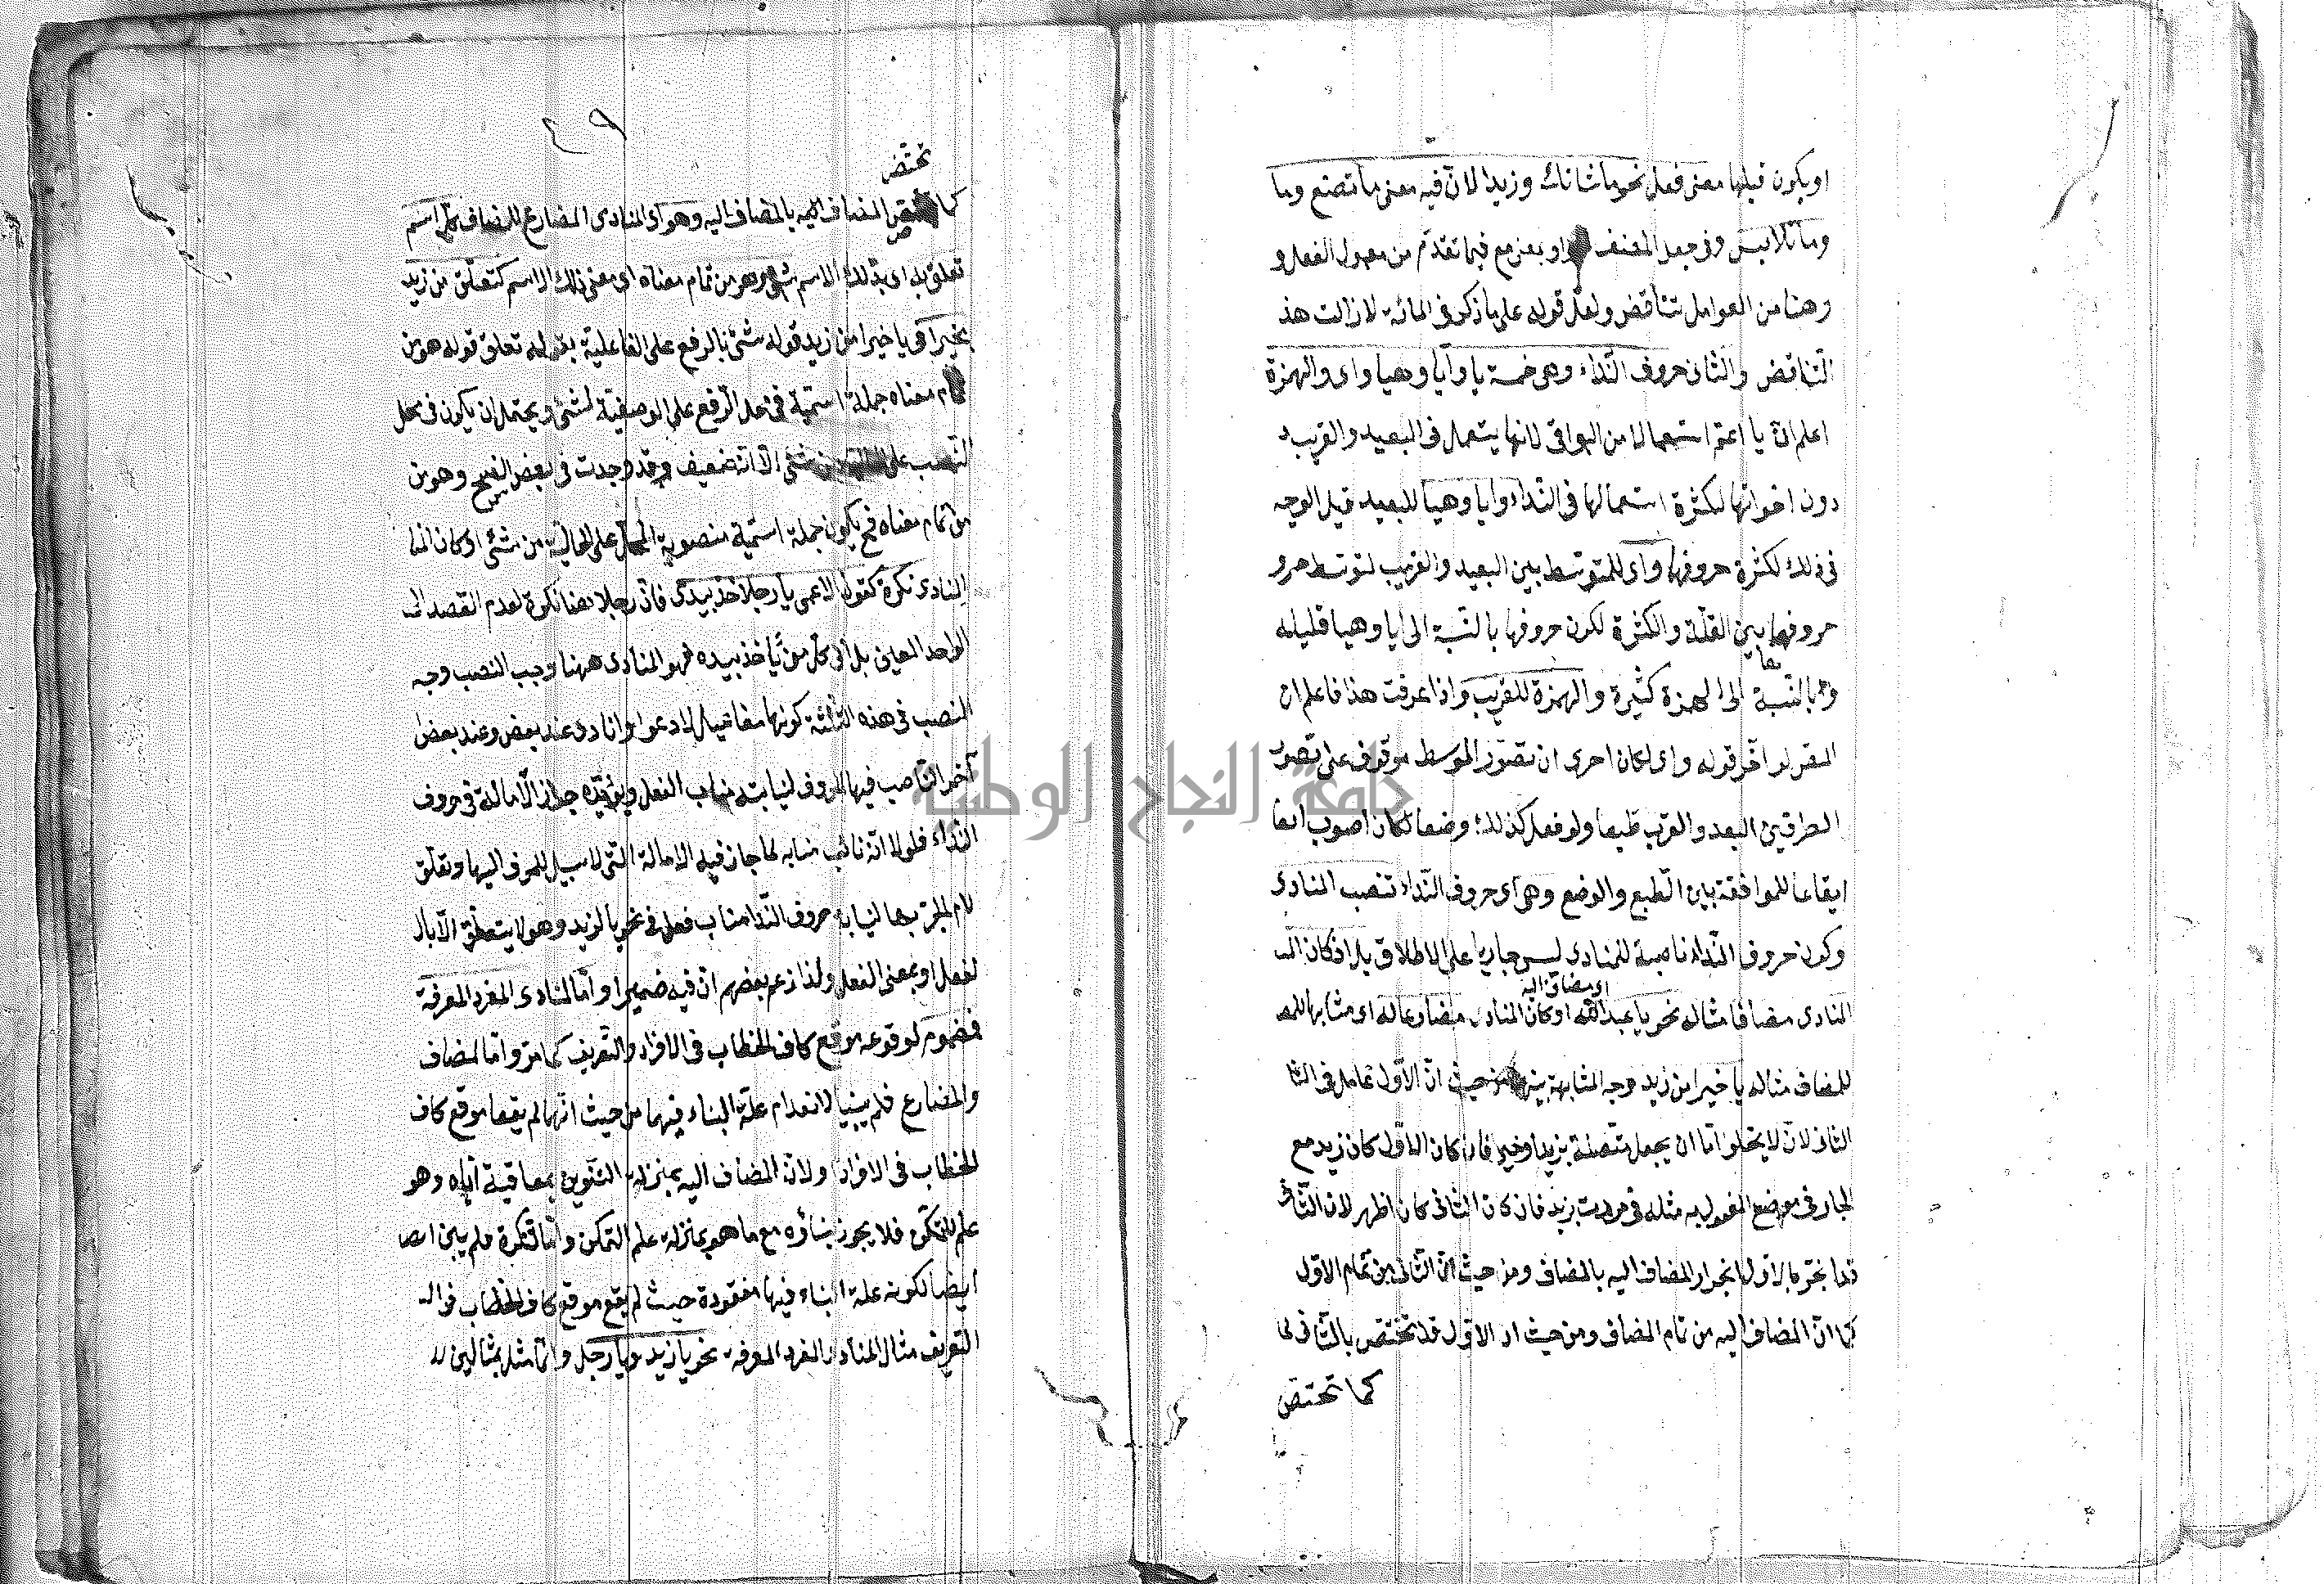 او يكون قبلها معنى فعل نحو ما شانك وزيدا لانّ فيه معنى ما تصنع وما
وما تلابس وفى جعل المصنف او بمعنى مع فيما تقدّم من معمول الفعل و
وهنا من العوامل تناقض ولعلّ قوله على ما ذكر فى المائة لازالت هذ
التّناقض والثانى حروف النّداء وهى خمسة يا وآيا وهيا واى والهمزة
اعلم انّ يا اعمّ استعمالا من البواقى لانها يستعمل فى البعيد والقريب
دون اخواتها لكثرة استعمالها فى النّداء وايا وهيا للبعيد قيل الوجه
فى ذلك لكثرة حروفها واى للمتوسّط بين البعيد والقريب لتوسّط حرو
حروفها بين القلّة والكثرة لكون حروفها بالنّسبة الى ايا وهيا قليله
وبالنّسبة الى الهمزة كثيرة والهمزة للقريب واذا عرفت هذا فاعلم ان
المقر لو اخّر قوله واى لكان احرى ان تصوّر المتوسط موقوف على تصوّر
الطرفين البعد والقرب طبعا ولو فعل كذلك وضعا لكان اصوب ايقا
ايقاعا للموافقة بين الطّبع والوضع وهى اى حروف النّداء تنصب المنادى
وكون حروف النّداء ناصبة للمنادى ليس جاريا على الاطلاق بل اذ كان الم
او مضاف اليه
المنادى مضافا مثاله نحو يا عبد الله او كان المنادى مضارعا له اى مشابها للم
للمضاف مثاله يا خيرا من زيد وجه المشابهة من حيث انّ الاوّل عامل فى الثا
الثانى لانّ لا يخلوا امّا ان يجعل متّصلة بزيد او خير فان كان الاوّل كان زيد مع
الجار فى موضع المفعول به مثله فى مررت بزيد فان كان الثانى كان اظهر لان الثّانى
بالاول انجرار المضاف اليه بالمضاف ومن حيث انّ الثانى من تمام الاوّل
كما انّ المضاف اليه من تمام المضاف ومن حيث ان الاوّل قد تختص بالثانى كما
كما تختص
٢٩
تختص
كما المضاف اليه بالمضاف اليه وهو اى المنادى المضارع للمضاف كلّ اسم
تعلق به اى بذلك الاسم شئ وهو من تمام معناه اى معنى ذلك الاسم كتعلّق من زيد
بخيرا فى يا خيرا من زيد قوله شئ بالرفع على الفاعلية بقوله تعلق قوله هو من
تمام معناه جملة اسميّة فى محل الرّفع على الوصفيّة لشئ ويحتمل ان يكون فى محل
النّصب على من شئ الّا انّه ضعيف وقد وجدت فى بعض النسخ وهو من
من تمام معناه فح يكون جملة اسميّة منصوبة المحلّ على الحاليّة من شئ او كان المنا
المنادى نكرة كقول الاعمى يا رجلا خذ بيدى فانّ رجلا هنا نكرة لعدم القصد الى
الواحد المعين بل الى كلّ من يأخذ بيده فهو المنادى ههنا وجب النصب وجه
النصب فى هذه الثّلثة كونها مفاعيل لادعوا وانادى عند بعض وعند بعض
آخر النّاصب فيها الحروف لنيابته مناب الفعل ويؤيّده جواز الامالة فى حروف
النّداء فلولا انّه نائب منابه لما جاز فيه الامالة التّى لا سبيل للحرف اليها وتعلّق
لام الجرّ بها لنيابة حروف النّدا مناب فعل فى نحو يا لزيد وهو لا يتعلّق الّا بال
لفعل او بمعنى الفعل ولذا زعم بعضهم انّ فيه ضميرا وامّا المنادى المفرد المعرفة
فمضموم لوقوعه موقع كاف الخطاب فى الافراد والتّعريف كما مرّ وامّا المضاف
والمضارع فلم يبنيا لانعدام علّة البناء فيهما من حيث انّهما لم يقعا موقع كاف
الخطاب فى الافراد ولانّ المضاف اليه بمنزلة التنوين بمعاقبة ايّاه وهو
علم للتمكّن فلا يجوز بناؤه مع ما هو بمنزلة علم التمكن وامّا النكرة فلم يبن ايضا
ايضا لكونه علة البناء فيها مفقودة حيث لم يقع موقع كاف الخطاب فى الـ
التعريف مثال المنادى المفرد المعرفة نحو يا زيد ويا رجل وانّما مثل بمثالين
جامعة النجاح الوطنية